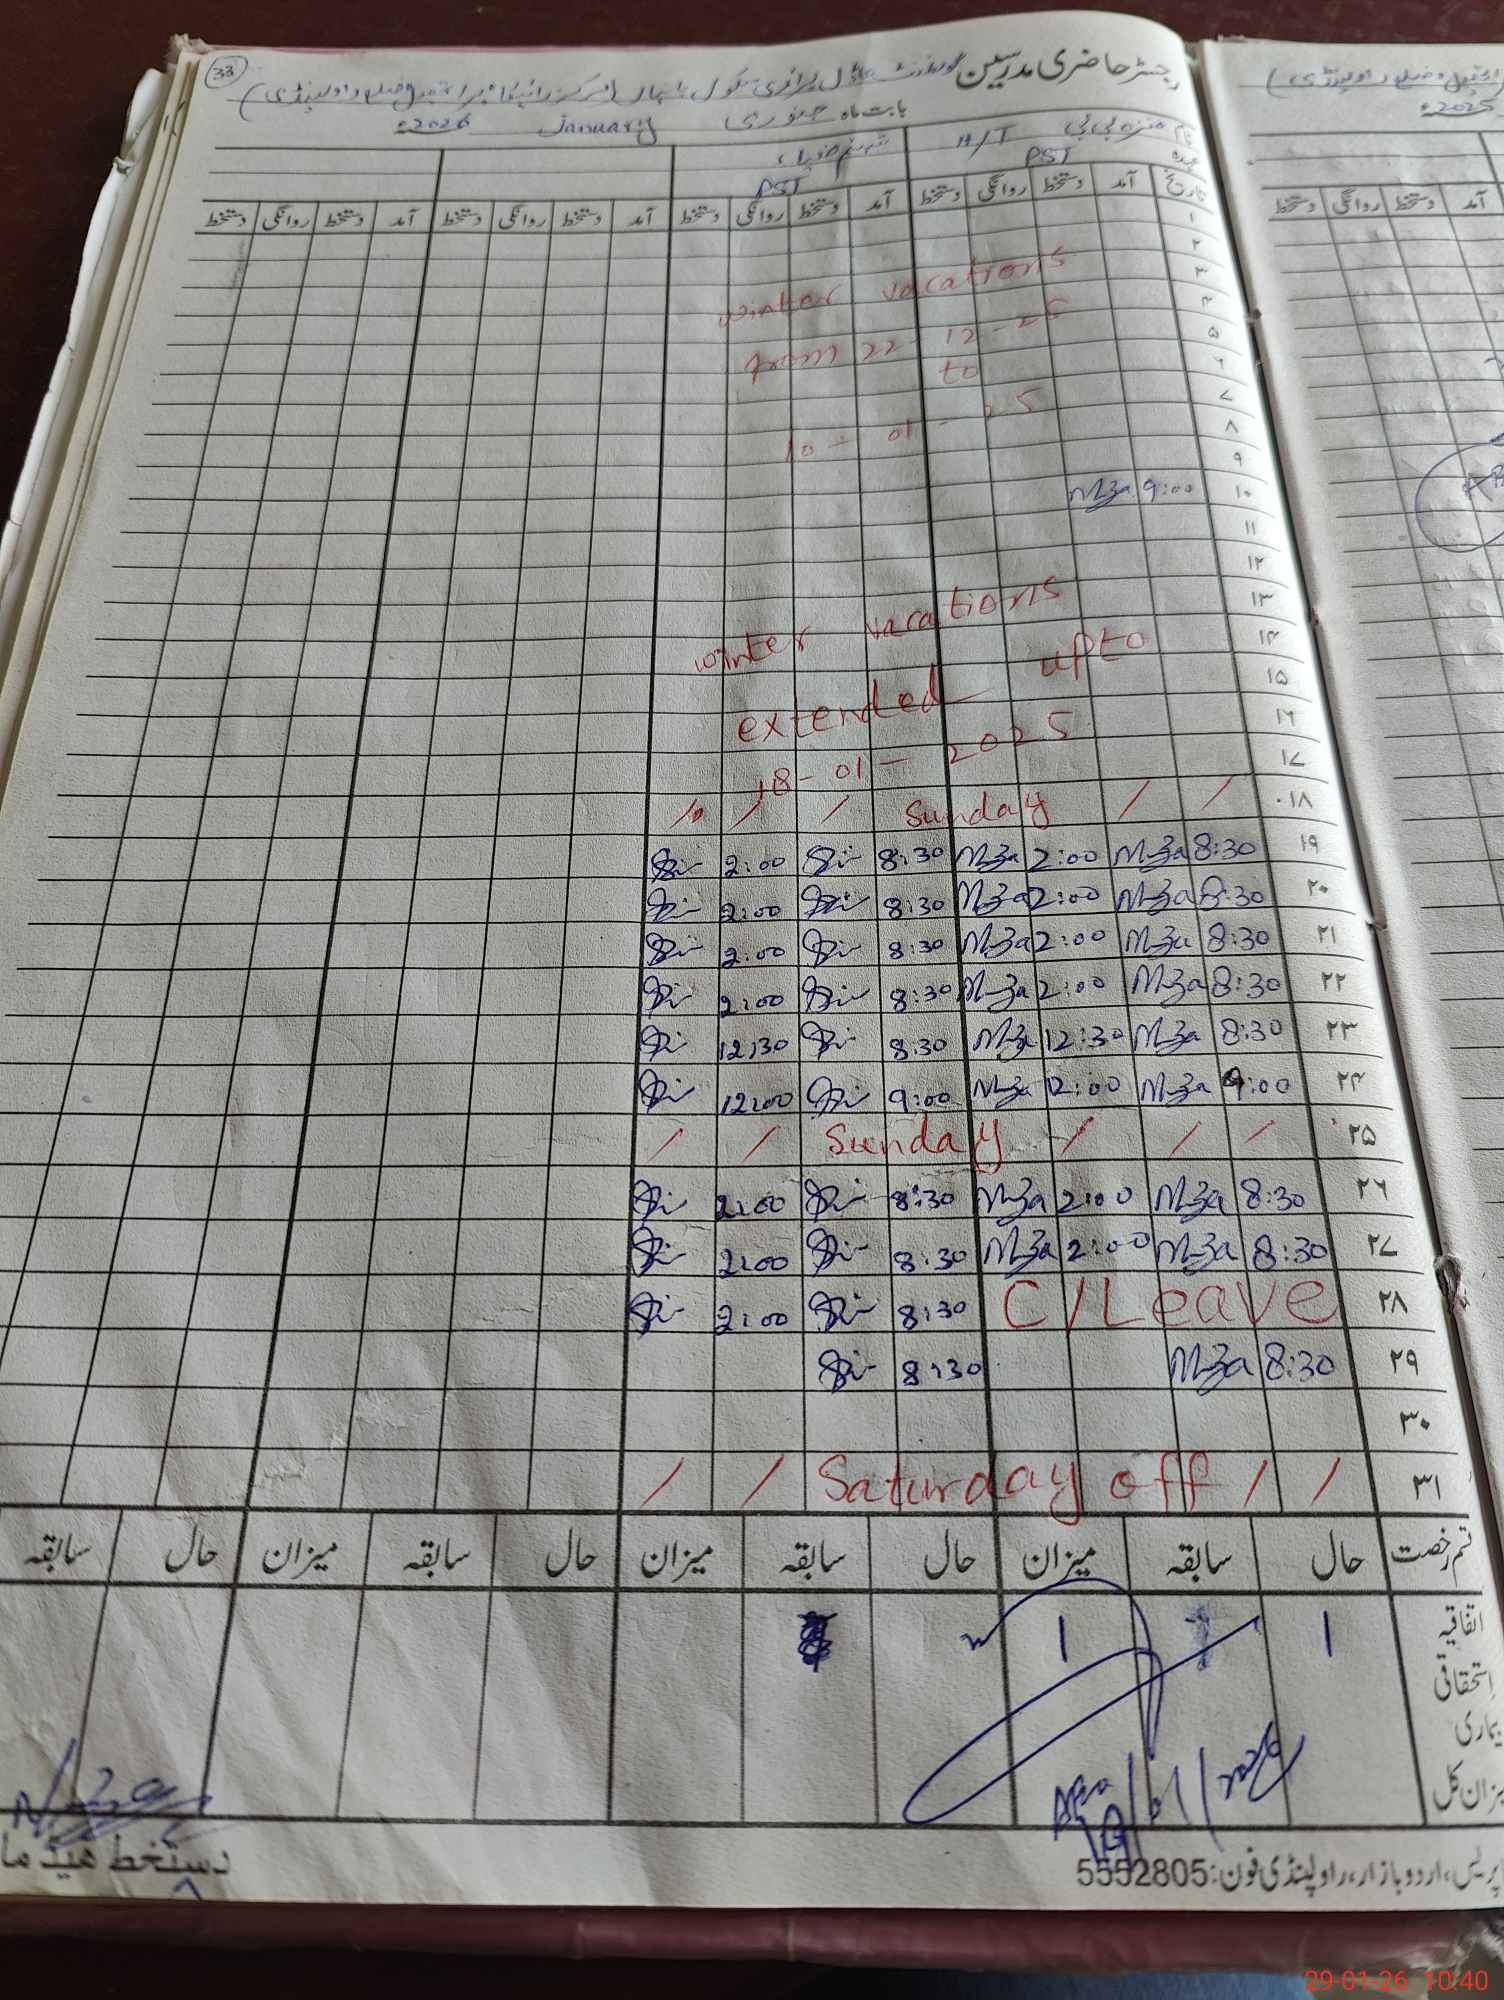 33
رجسٹر حاضری مدرسین گورنمنٹ ماڈل پرائمری سکول
بابت ماہ جنوری January 2026ء
نام
عہدہ
H/T
PST
PST
تاریخ آمد دستخط روانگی دستخط آمد دستخط روانگی دستخط آمد دستخط روانگی دستخط آمد دستخط روانگی دستخط
۱
۲
۳
winter vacations
۴
۵
from 22-12-25
۶
to
۷
۸
10-01-25
۹
۱۰ 9:00 Mza
۱۱
۱۲
۱۳
winter vacations
۱۴
۱۵
extended upto
۱۶
۱۷
18-01-2025
۱۸ / / Sunday / / /
۱۹ 8:30 Mza 2:00 Mza 8:30 2:00
۲۰ 8:30 Mza 2:00 Mza 8:30 2:00
۲۱ 8:30 Mza 2:00 Mza 8:30 2:00
۲۲ 8:30 Mza 2:00 Mza 8:30 2:00
۲۳ 8:30 Mza 12:30 Mza 8:30 12:30
۲۴ 9:00 Mza 12:00 Mza 9:00 12:00
۲۵ / / / Sunday / /
۲۶ 8:30 Mza 2:00 Mza 8:30 2:00
۲۷ 8:30 Mza 2:00 Mza 8:30 2:00
۲۸ C/Leave 8:30 2:00
۲۹ 8:30 Mza 8:30
۳۰
۳۱ / / Saturday off / /
قسم رخصت حال سابقہ میزان حال سابقہ میزان حال سابقہ میزان حال سابقہ
اتفاقیہ 1 1
استحقاقی
بیماری
میزان کل
دستخط ھیڈ ما
پریس، اردو بازار، راولپنڈی فون: 5552805
آمد دستخط روانگی دستخط
2025ء
29-01-26 10:40